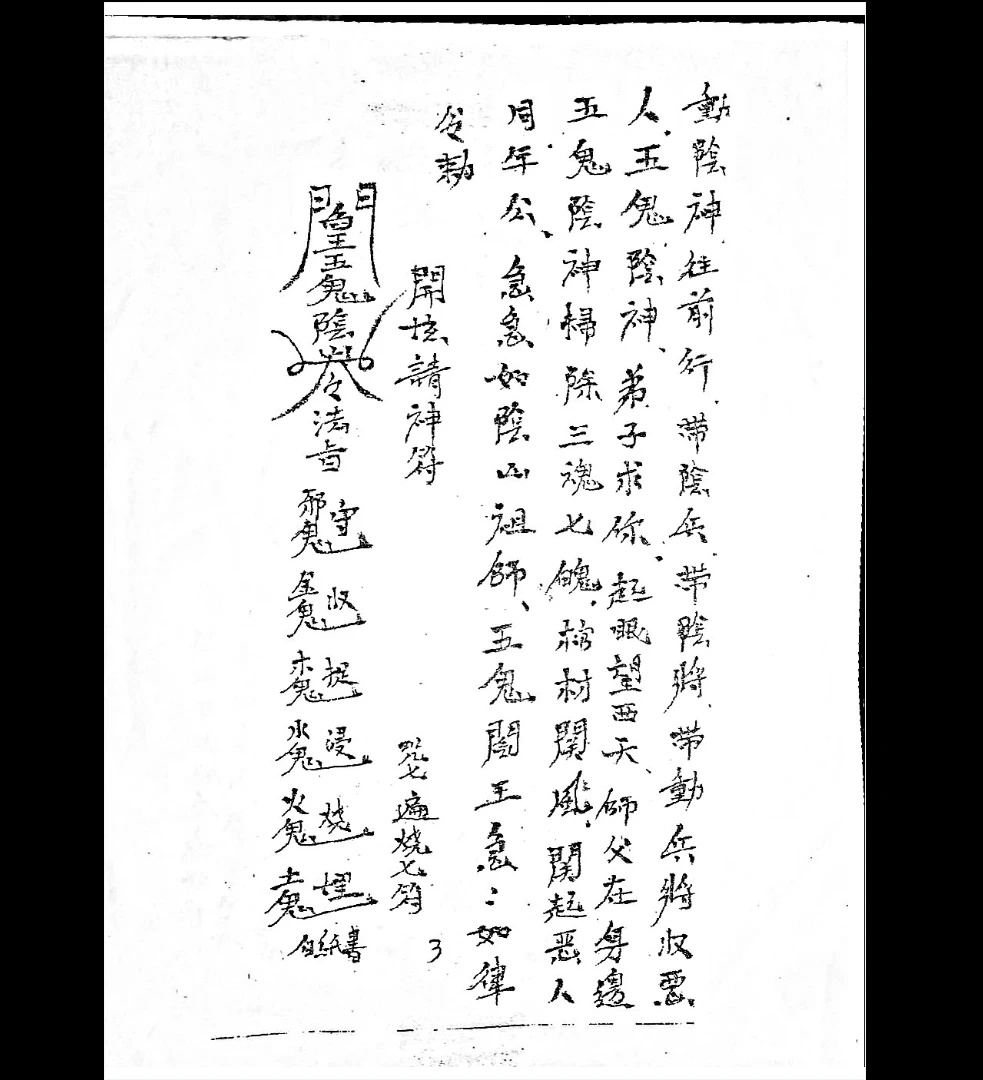 動陰神往前行、帶陰兵、帶陰將、帶動兵將收惡
人、五鬼陰神、弟子求你、起眼望西天、師父在身邊
五鬼陰神掃除三魂七魄、棺材関風、関起恶人
同年公、急急如陰山祖師、五鬼閻王急〻如律
令勅
開坛請神符
咒七遍燒七符
3
五鬼陰
法旨
邪鬼 守
金鬼 收
木鬼 捉
水鬼 浸
火鬼 燒
土鬼 埋
白紙書